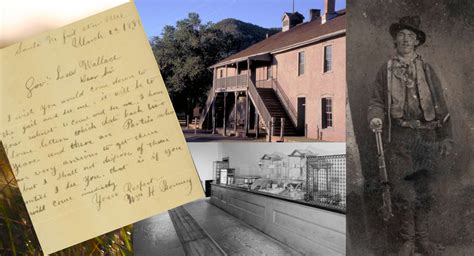 Santa Fe Jail New Mex
March 2d 1881
Gov. Lew Wallace
Dear Sir
I wish you would come down to
the jail and see me. it will be to
your interest to come and see me. I have
some letters which date back two
years and there are Parties who
are very anxious to get them
but I shall not dispose of them
until I see you. that is if you
will come
Yours Respect
Wm H Bonney